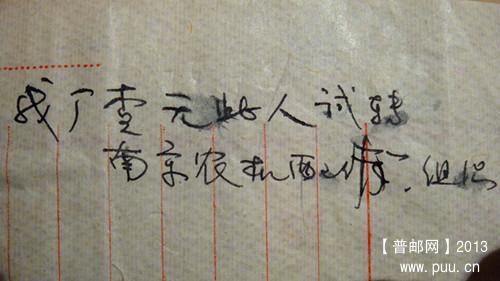 我厂查无此人试转
南京农机配件厂.组织
【普邮网】2013
www.puu.cn